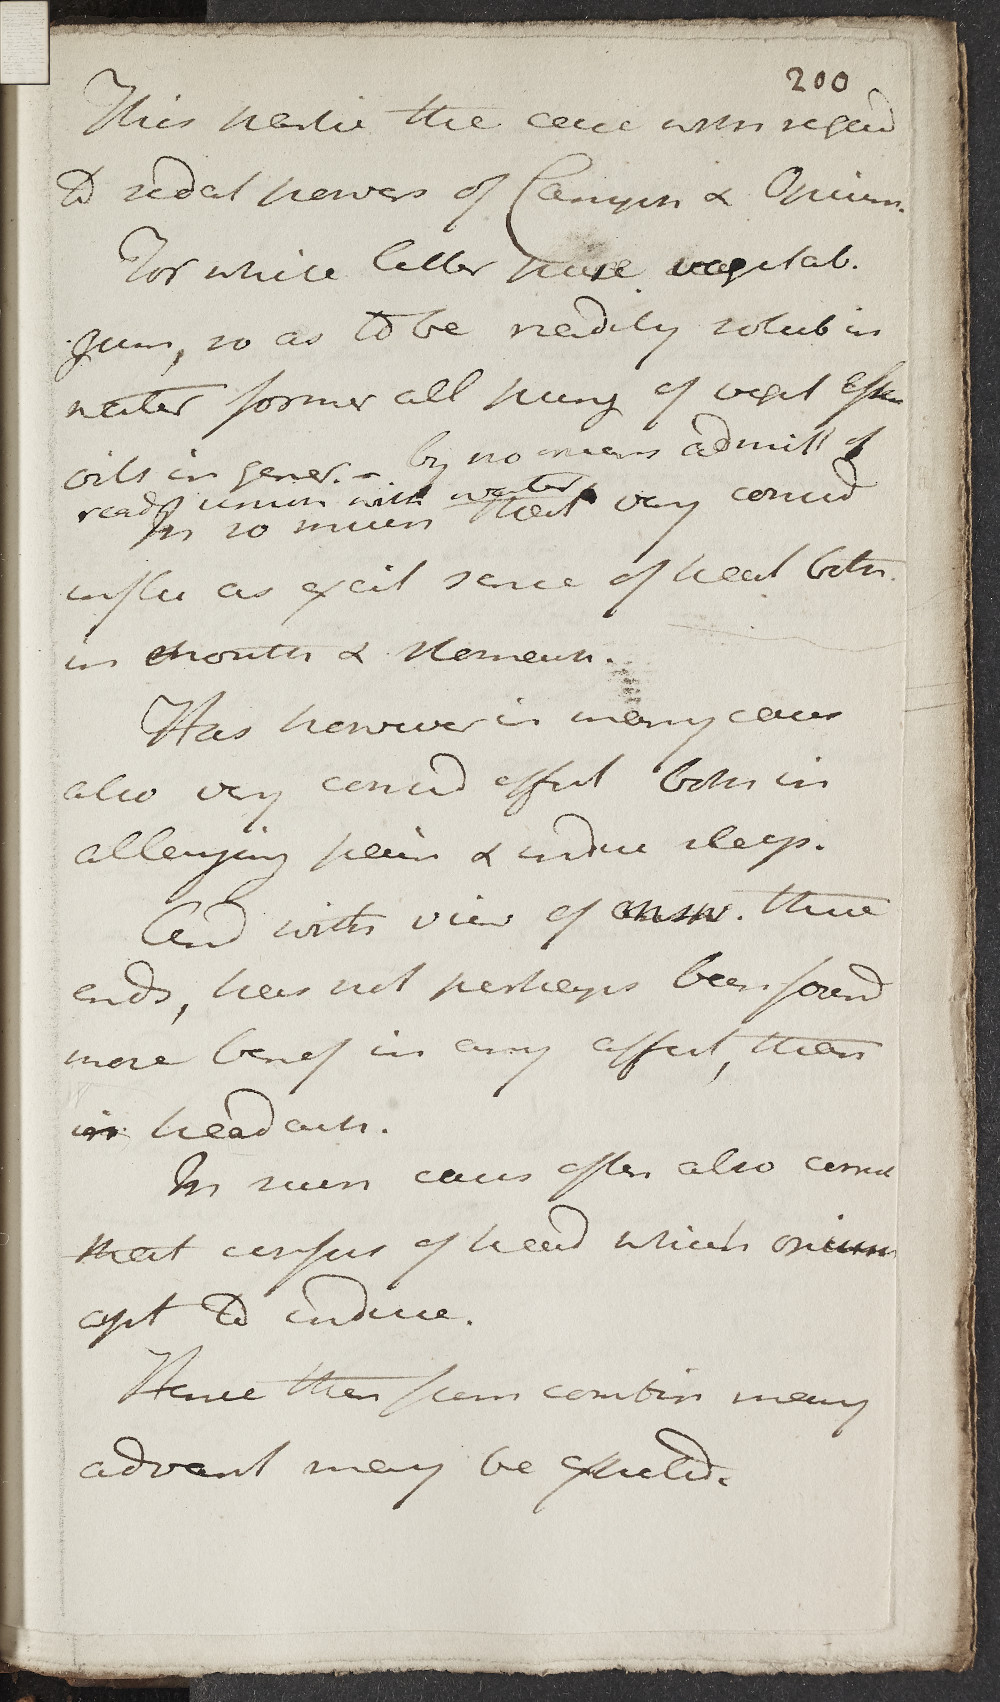 200
This partic the case with regard
to sedat powers of Camphr & Opium.
For while latter pure vegetab.
gum, so as to be readily solub in
water former all pung of veget essen
oils in gener. - by no means admitt of
ready union with water
In so much that very consid
influ as excit sense of heat both
in mouth & stomach.
Has however in many cases
also very consid effect both in
allaying pain & induc sleep.
And with view of answ. these
ends, has not perhaps been found
more benef in any affect, than
in headach.
In such cases often also correct
that confus of head which opium
apt to induce.
Hence then from combin many
advant may be expected.